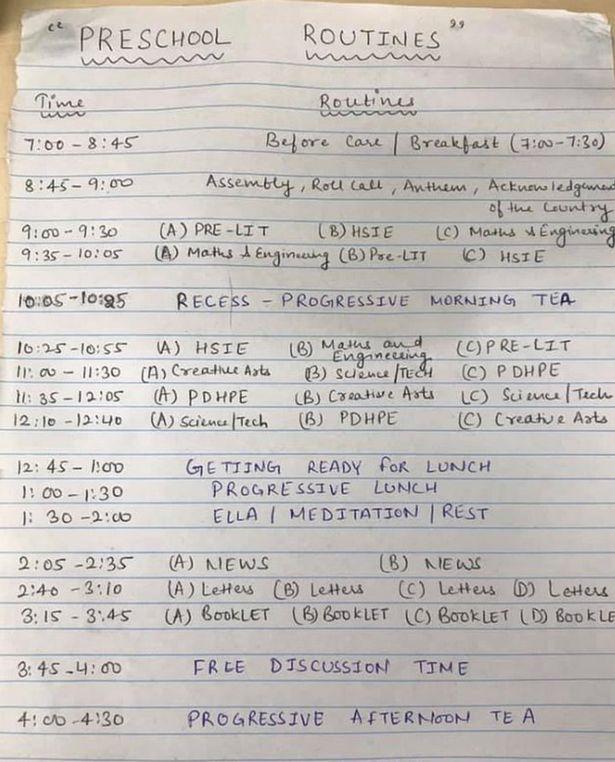 “ PRESCHOOL ROUTINES ”
Time Routines
7:00 - 8:45 Before Care | Breakfast (7:00-7:30)
8:45 - 9:00 Assembly, Roll Call, Anthem, Acknowledgement
of the Country
9:00 - 9:30 (A) PRE-LIT (B) HSIE (C) Maths & Engineering
9:35 - 10:05 (A) Maths & Engineering (B) Pre-LIT (C) HSIE
10:05-10:25 RECESS - PROGRESSIVE MORNING TEA
10:25-10:55 (A) HSIE (B) Maths and Engineering (C) PRE-LIT
11:00 - 11:30 (A) Creative Arts (B) Science/TECH (C) PDHPE
11:35 - 12:05 (A) PDHPE (B) Creative Arts (C) Science/Tech
12:10 - 12:40 (A) Science/Tech (B) PDHPE (C) Creative Arts
12:45 - 1:00 GETTING READY FOR LUNCH
1:00 - 1:30 PROGRESSIVE LUNCH
1:30 - 2:00 ELLA | MEDITATION | REST
2:05 - 2:35 (A) NEWS (B) NEWS
2:40 - 3:10 (A) Letters (B) Letters (C) Letters (D) Letters
3:15 - 3:45 (A) BOOKLET (B) BOOKLET (C) BOOKLET (D) BOOKLE
3:45 - 4:00 FREE DISCUSSION TIME
4:00 - 4:30 PROGRESSIVE AFTERNOON TEA